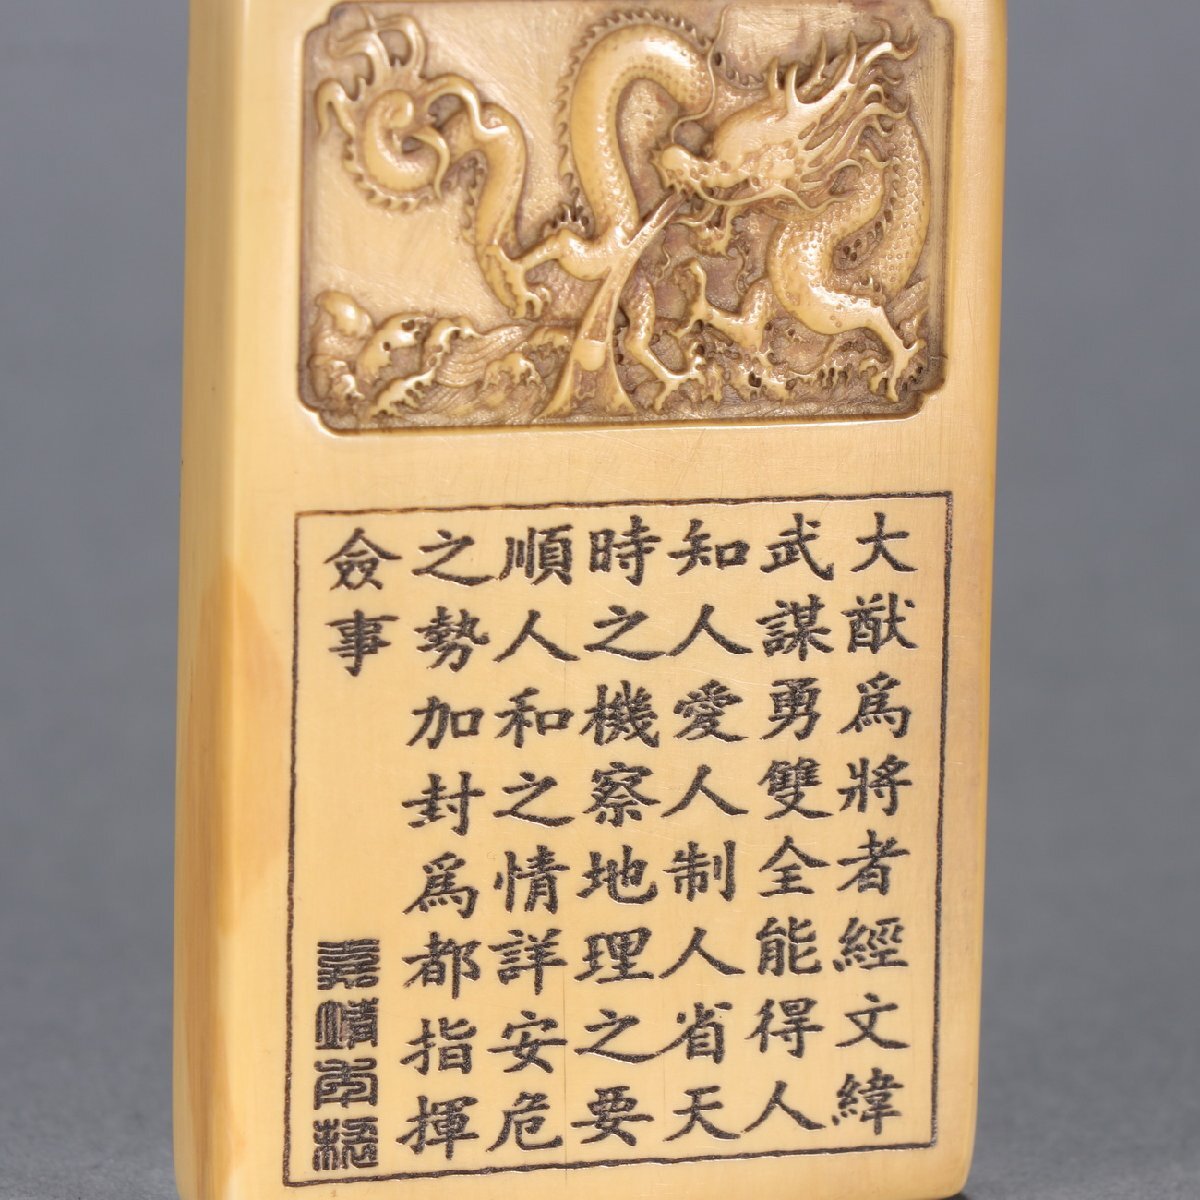 大猷爲將者經文緯
武謀勇雙全能得人
知人愛人制人省天
時之機察地理之要
順人和之情詳安危
之勢加封爲都指揮
僉事
嘉靖年製